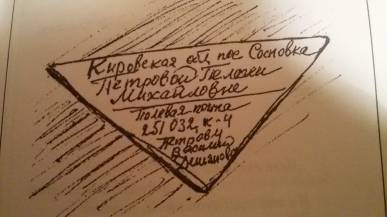 Кировская обл, пос Сосновка
Петровой Пелажи
Михайловне
Полевая почта
251032, К-4
Петрову
Василию